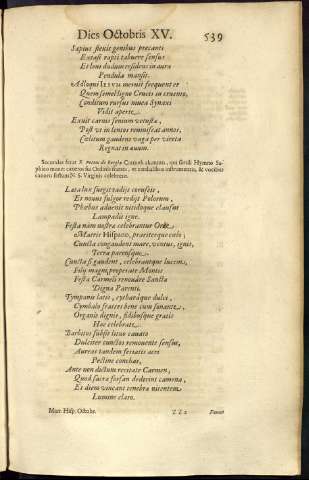 Dies Octobris XV. 539
Sæpius stetit genibus precanti
Extasi rapti tabuere sensus
Et leui dudum residens in aura
Pendula mansit.
Adloqui IESVM meruit frequenter
Quem semel ligno Crucis in cruento,
Conditum rursus niuea Synaxi
Vidit aperte.
Exuit carnis senium vetustæ,
Post vt in lentos remouscat annos,
Cælitum gaudens vaga per vireta
Regnat in æuum.
Secundus ferat P. Petrus de Carmen alternum, qui sicuti Hymno Sa-
phico monet cæteros sui Ordinis fratres, vt cymbalibus instrumentis, & vocibus
canoris festum N. S. Virginis celebrent.
Lata lux surgit radijs coruscis,
Et nouus fulgor redijt Polorum,
Phœbus aduenit nitidoque clausus
Lampadis igne.
Festa nam nostra celebrantur Orbe,
Matris Hispano, praeiterque colo;
Cuncta congaudent mare, ventus, ignis,
Terra parensque.
Cuncta si gaudent, celebrantque lucem,
Filij magni, properate Montis
Festa Carmeli renouare Sancta
Digna Parentis.
Tympanis latis, cytharaque dulci,
Cymbalo fratres bene cum sonante,
Organis dignis, fidibusque gratis
Hoc celebrate.
Barbitos subsit lituo canato
Dulciter cunctos remouente sensus,
Aureas tandem feriatis acri
Pectine conchas,
Ante non dictum recitate Carmen,
Quod sacra forsan dederint camena,
Et diem vincant tenebra nitentem
Lumine claro.
Mart. Hisp. Octobr. Zz 2 Fauent